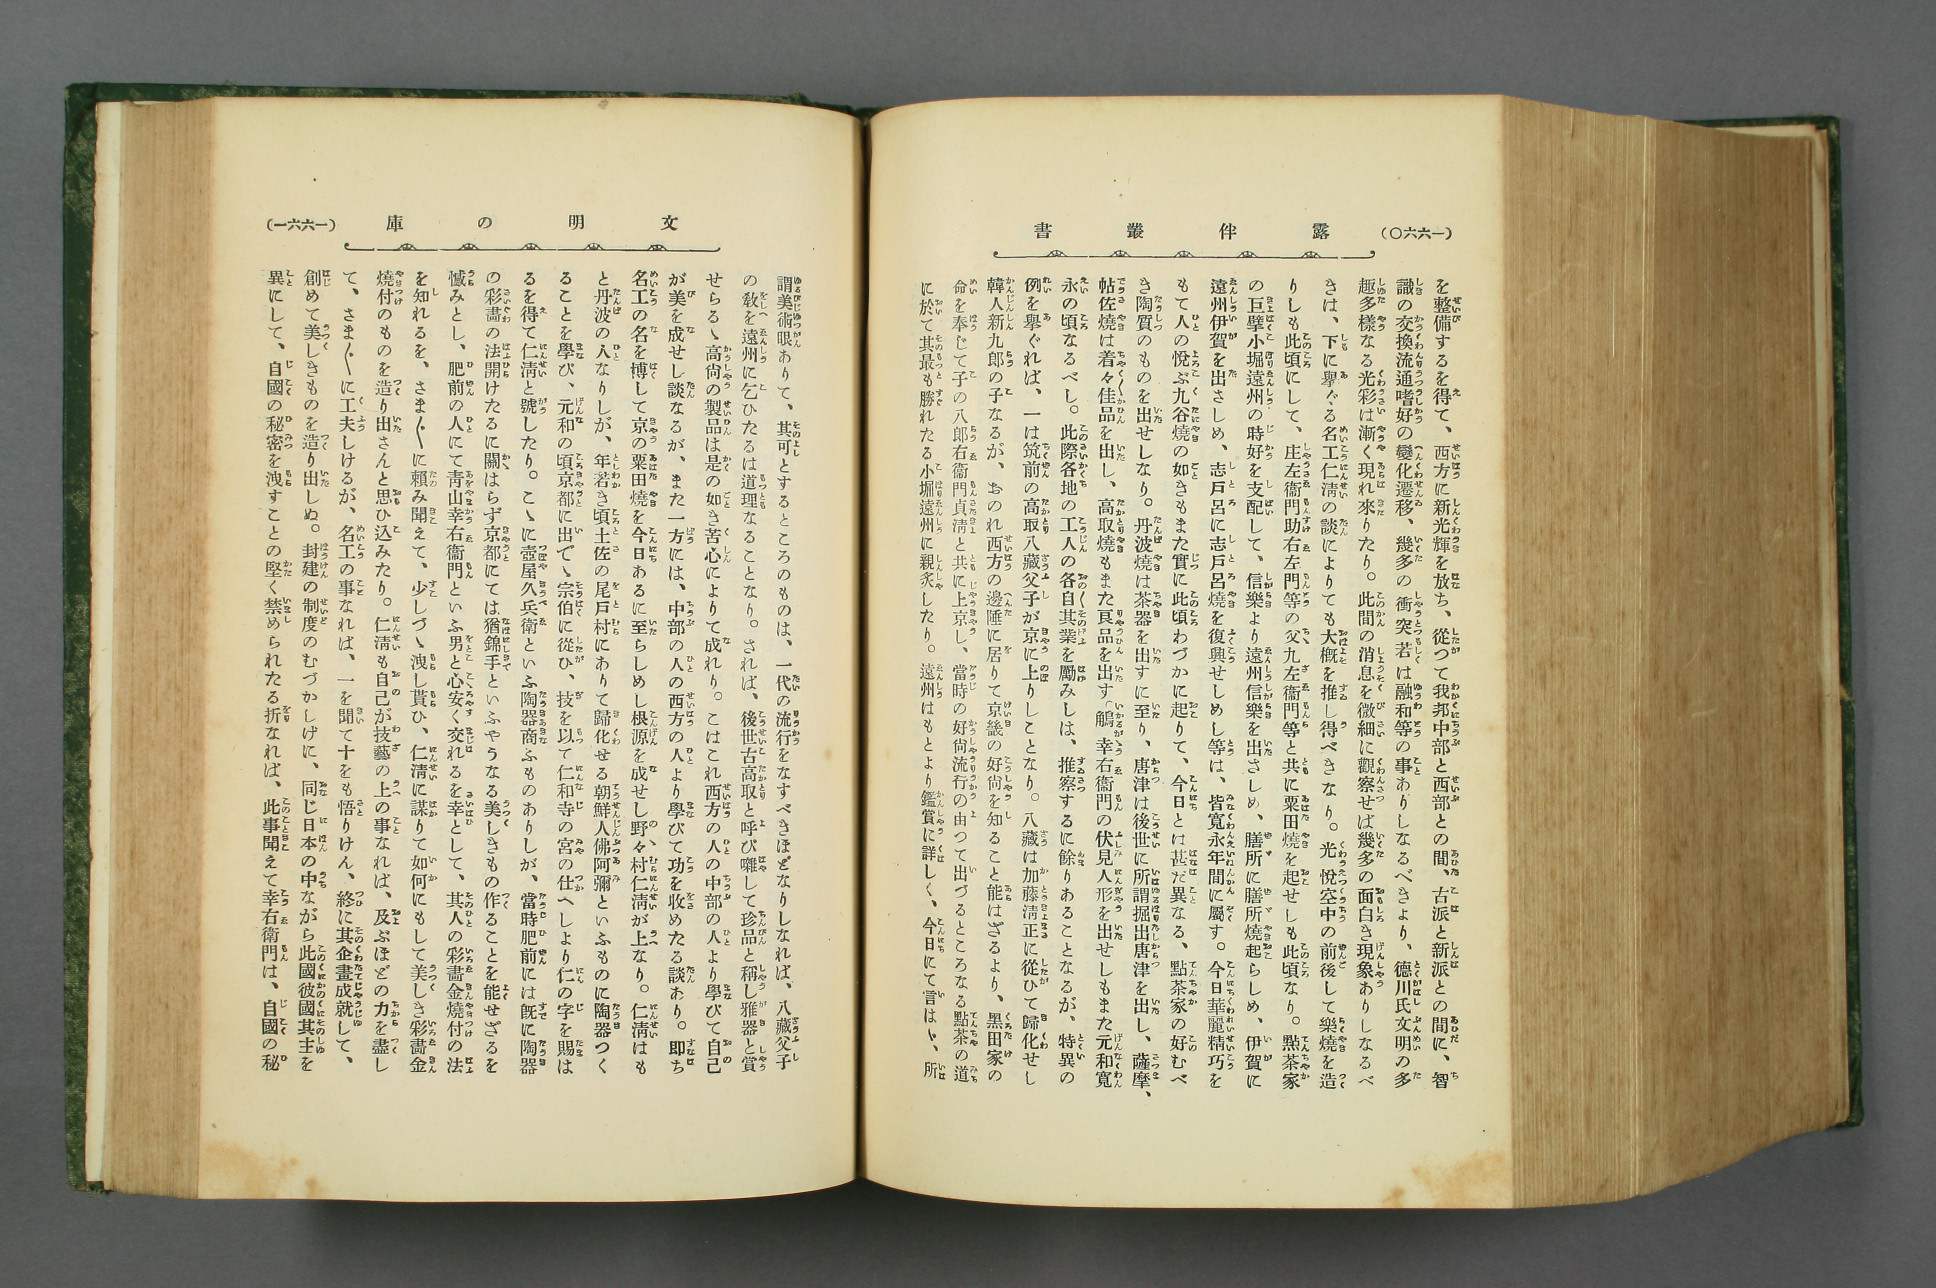 (一六六〇)
露伴叢書
を整備するを得て、西方に新光輝を放ち、從つて我邦中部と西部との間、古派と新派との間に、智
識の交換流通嗜好の變化遷移、幾多の衝突若は融和等の事ありしなるべきより、德川氏文明の多
趣多樣なる光彩は漸く現れ來りたり。此間の消息を微細に觀察せば幾多の面白き現象ありしなるべ
きは、下に擧ぐる名工仁淸の談によりても大槪を推し得べきなり。光悅空中の前後して樂燒を造
りしも此頃にして、庄左衞門助右左門等の父九左衞門等と共に粟田燒を起せしも此頃なり。點茶家
の巨擘小堀遠州の時好を支配して、信樂より遠州信樂を出さしめ、膳所に膳所燒起らしめ、伊賀に
遠州伊賀を出さしめ、志戶呂に志戶呂燒を復興せしめし等は、皆寬永年間に屬す。今日華麗精巧を
もて人の悅ぶ九谷燒の如きもまた實に此頃わづかに起りて、今日とは甚だ異なる、點茶家の好むべ
き陶質のものを出せしなり。丹波燒は茶器を出すに至り、唐津は後世に所謂掘出唐津を出し、薩摩、
帖佐燒は着々佳品を出し、高取燒もまた良品を出す。鵤幸右衞門の伏見人形を出せしもまた元和寬
永の頃なるべし。此際各地の工人の各自其業を勵みしは、推察するに餘りあることなるが、特異の
例を擧ぐれば、一は筑前の高取八藏父子が京に上りしことなり。八藏は加藤淸正に從ひて歸化せし
韓人新九郎の子なるが、おのれ西方の邊陲に居りて京畿の好尙を知ること能はざるより、黑田家の
命を奉じて子の八郎右衞門貞淸と共に上京し、當時の好尙流行の由つて出づるところなる點茶の道
に於て其最も勝れたる小堀遠州に親炙したり。遠州はもとより鑑賞に詳しく、今日にて言はゞ、所
(一六六一)
文明の庫
謂美術眼ありて、其可とするところのものは、一代の流行をなすべきほどなりしなれば、八藏父子
の敎を遠州に乞ひたるは道理なることなり。されば、後世古高取と呼び囃して珍品と稱し雅器と賞
せらるゝ高尙の製品は是の如き苦心によりて成れり。こはこれ西方の人の中部の人より學びて自己
が美を成せし談なるが、また一方には、中部の人の西方の人より學びて功を收めたる談あり。卽ち
名工の名を博して京の粟田燒を今日あるに至らしめし根源を成せし野々村仁淸が上なり。仁淸はも
と丹波の人なりしが、年若き頃土佐の尾戶村にありて歸化せる朝鮮人佛阿彌といふものに陶器つく
ることを學び、元和の頃京都に出でゝ宗伯に從ひ、技を以て仁和寺の宮の仕へしより仁の字を賜は
るを得て仁淸と號したり。こゝに壺屋久兵衞といふ陶器商ふものありしが、當時肥前には旣に陶器
の彩畵の法開けたるに關はらず京都にては猶錦手といふやうなる美しきもの作ることを能せざるを
憾みとし、肥前の人にて靑山幸右衞門といふ男と心安く交れるを幸として、其人の彩畵金燒付の法
を知れるを、さま〴〵に賴み聞えて、少しづゝ洩し貰ひ、仁淸に謀りて如何にもして美しき彩畵金
燒付のものを造り出さんと思ひ込みたり。仁淸も自己が技藝の上の事なれば、及ぶほどの力を盡し
て、さま〴〵に工夫しけるが、名工の事なれば、一を聞て十をも悟りけん、終に其企畫成就して、
創めて美しきものを造り出しぬ。封建の制度のむづかしげに、同じ日本の中ながら此國彼國其主を
異にして、自國の秘密を洩すことの堅く禁められたる折なれば、此事聞えて幸右衞門は、自國の秘